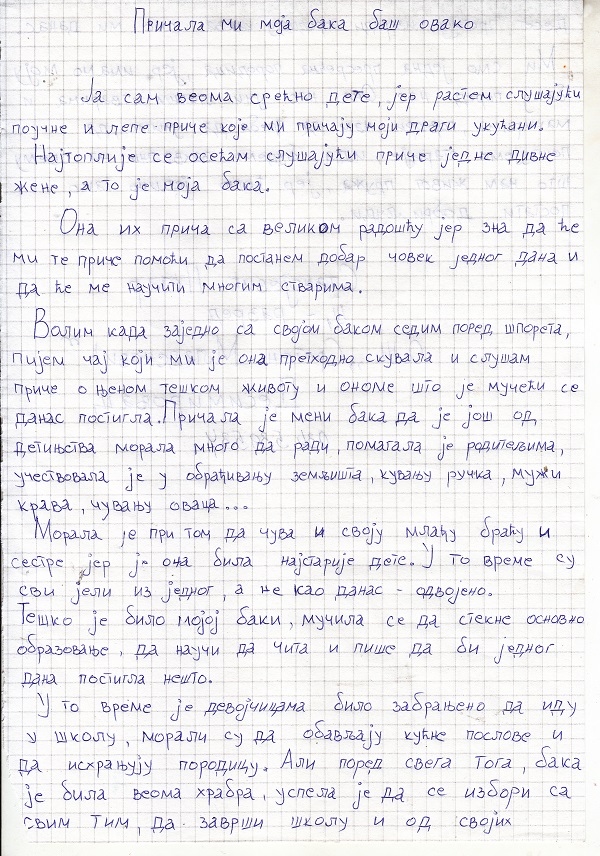 Причала ми моја бака баш овако
Ја сам веома срећно дете, јер растем слушајући
поучне и лепе приче које ми причају моји драги укућани.
Најтоплије се осећам слушајући приче једне дивне
жене, а то је моја бака.
Она их прича са великом радошћу јер зна да ће
ми те приче помоћи да постанем добар човек једног дана и
да ће ме научити многим стварима.
Волим када заједно са својом баком седим поред шпорета,
пијем чај који ми је она претходно скувала и слушам
приче о њеном тешком животу и ономе што је мучећи се
данас постигла. Причала је мени бака да је још од
детињства морала много да ради, помагала је родитељима,
учествовала је у обрађивању земљишта, кувању ручка, мужи
крава, чувању оваца...
Морала је при том да чува и своју млађу браћу и
сестре јер је она била најстарије дете. У то време су
сви јели из једног, а не као данас - одвојено.
Тешко је било мојој баки, мучила се да стекне основно
образовање, да научи да чита и пише да би једног
дана постигла нешто.
У то време је девојчицама било забрањено да иду
у школу, морали су да обављају кућне послове и
да исхрањују породицу. Али поред свега тога, бака
је била веома храбра, успела је да се избори са
свим тим, да заврши школу и од својих